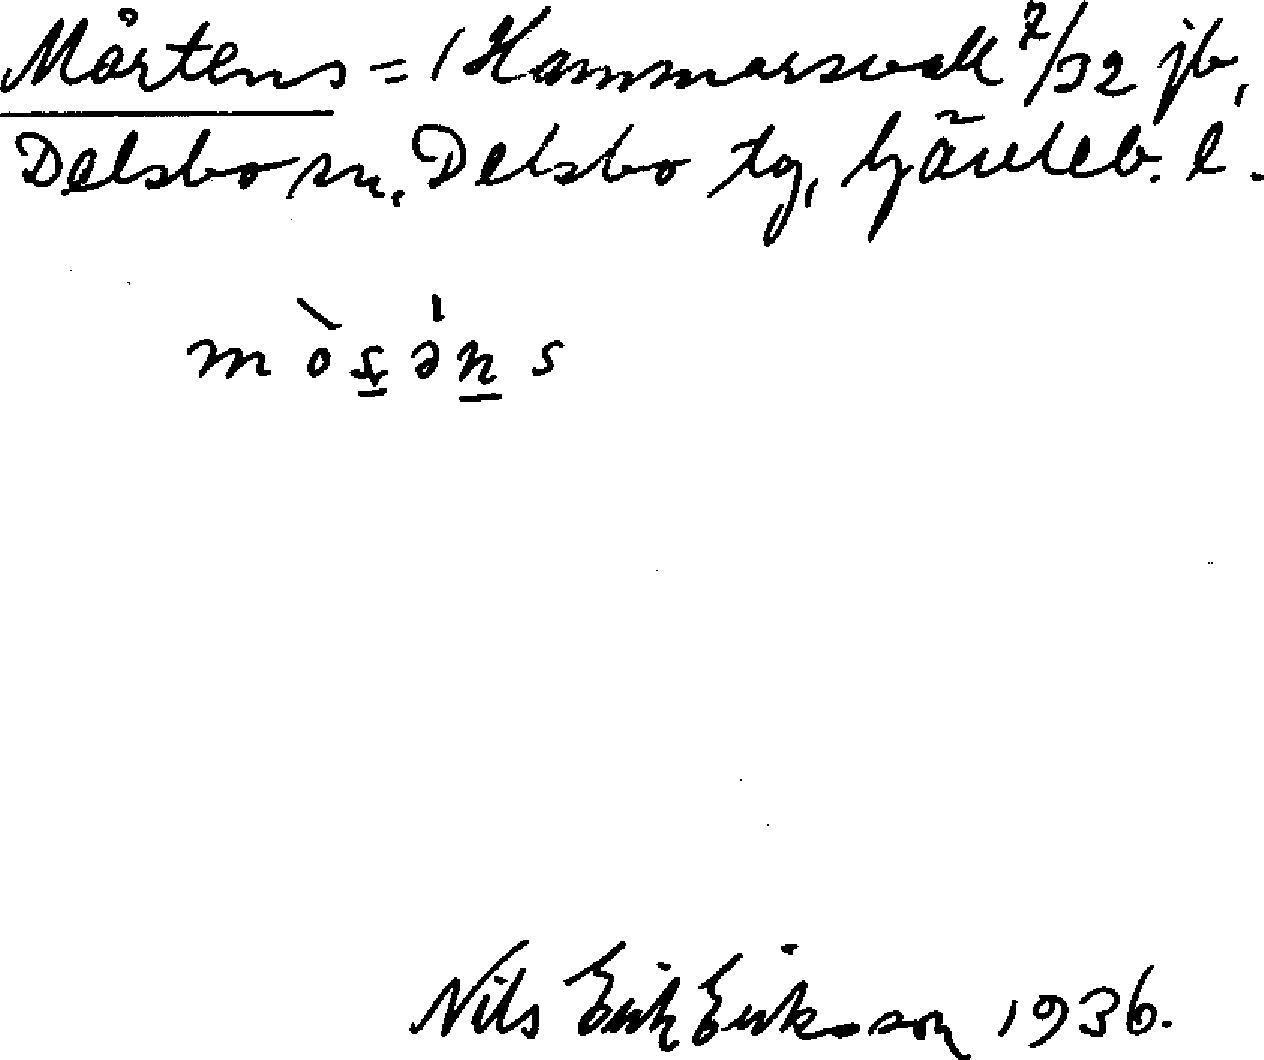 Mårtens = (Hammarsvall 7/32 jb,
Delsbo sn, Delsbo tg, Gävleb. l.
Nils Erik Eriksson 1936.